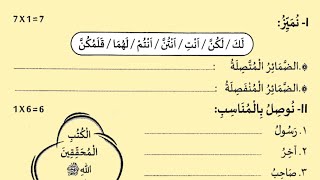 I- نُمَيِّزُ:
7 X 1 = 7
لَكَ / لَكُنَّ / اَنْتِ / اَنْتُنَّ / اَنْتُمْ / لَهُمَا / قَلَمُكُنَّ
الضَّمَائِرُ الْمُتَّصِلَةُ:
الضَّمَائِرُ الْمُنْفَصِلَةُ:
II- نُوصِلُ بِالْمُنَاسِبِ:
1 X 6 = 6
١. رَسُولُ
٢. اٰخِرُ
٣. صَاحِبُ
الْكُتُبِ
الْمُحَقِّقِينَ
اللهِ ﷺ